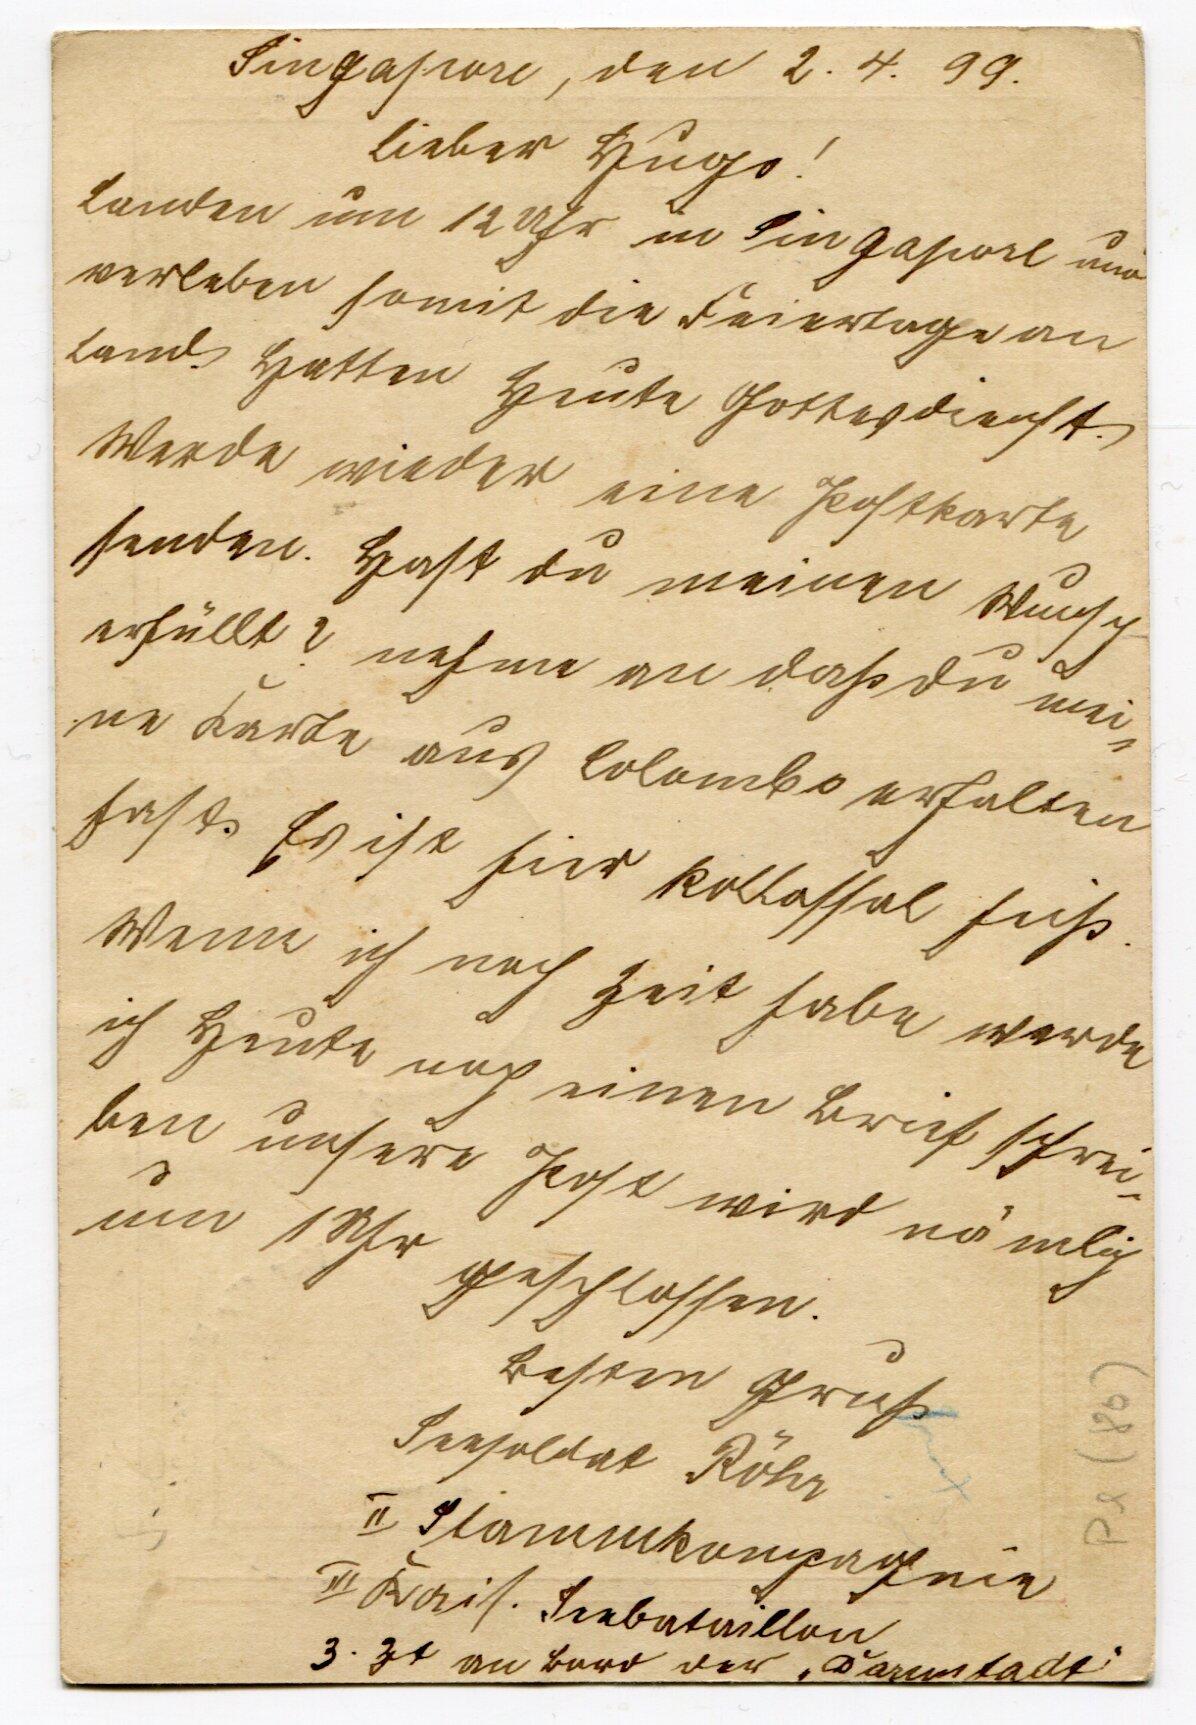 Singapore, den 2. 4. 99.
Lieber Hugo!
Landen um 12 Uhr in Singapore und
verleben somit die Feiertage an
Land. Hatten Heute Gottesdienst.
Werde wieder eine Postkarte
senden. Hast du meinen Wunsch
erfüllt? nehme an daß du mei-
ne Karte aus Colombo erhalten
hast. Es ist hier kollossal heiß.
Wenn ich noch Zeit habe werde
ich Heute noch einen Brief schrei-
ben unsere Post wird nämlich
um 1 Uhr geschlossen.
Besten Gruß
Seesoldat Röhr
II Stammkompagnie
III Kais. Seebataillon
3. Zt an Bord der „Darmstadt"